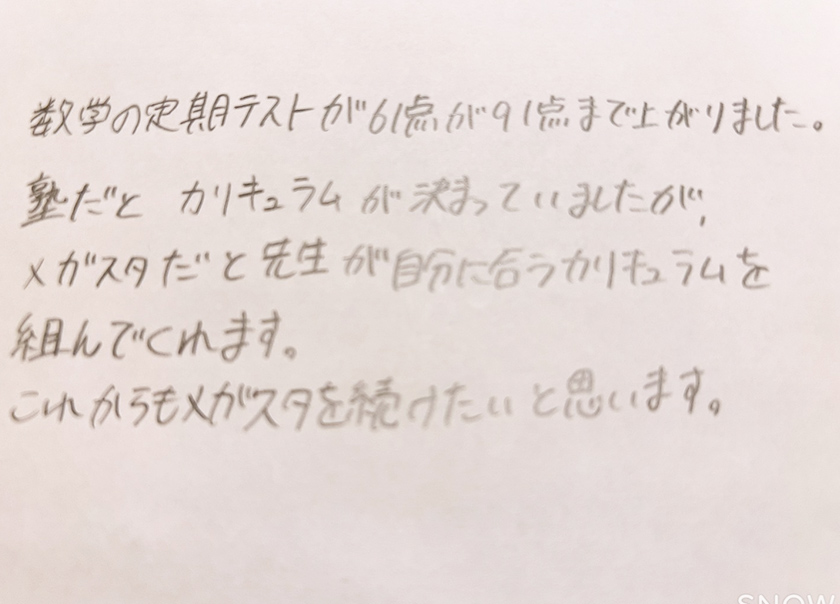 数学の定期テストが61点が91点まで上がりました。
塾だと カリキュラムが決まっていましたが,
メガスタだと先生が自分に合うカリキュラムを
組んでくれます。
これからもメガスタを続けたいと思います。
SNOW